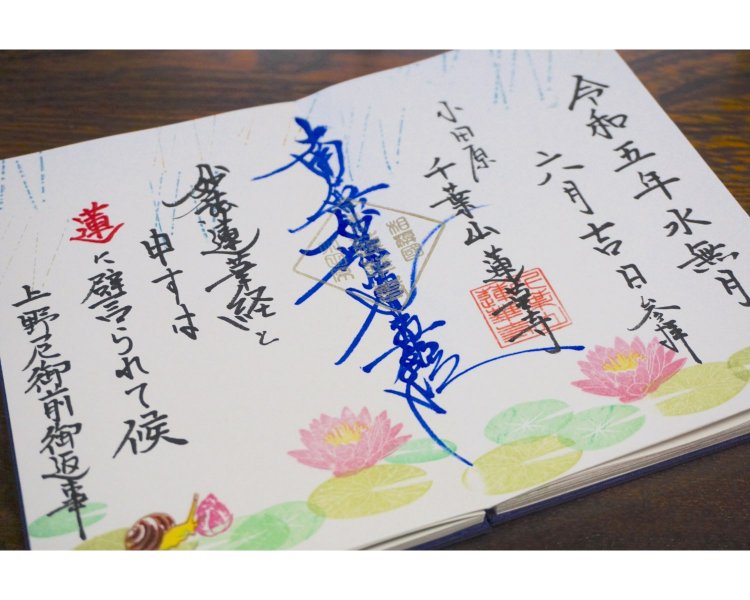 令和五年水無月
六月吉日参拝
小田原
千葉山 蓮華寺
南無妙法蓮華経
相模國
妙法蓮華経と
申すは
蓮に譬られて候
上野尼御前御返事